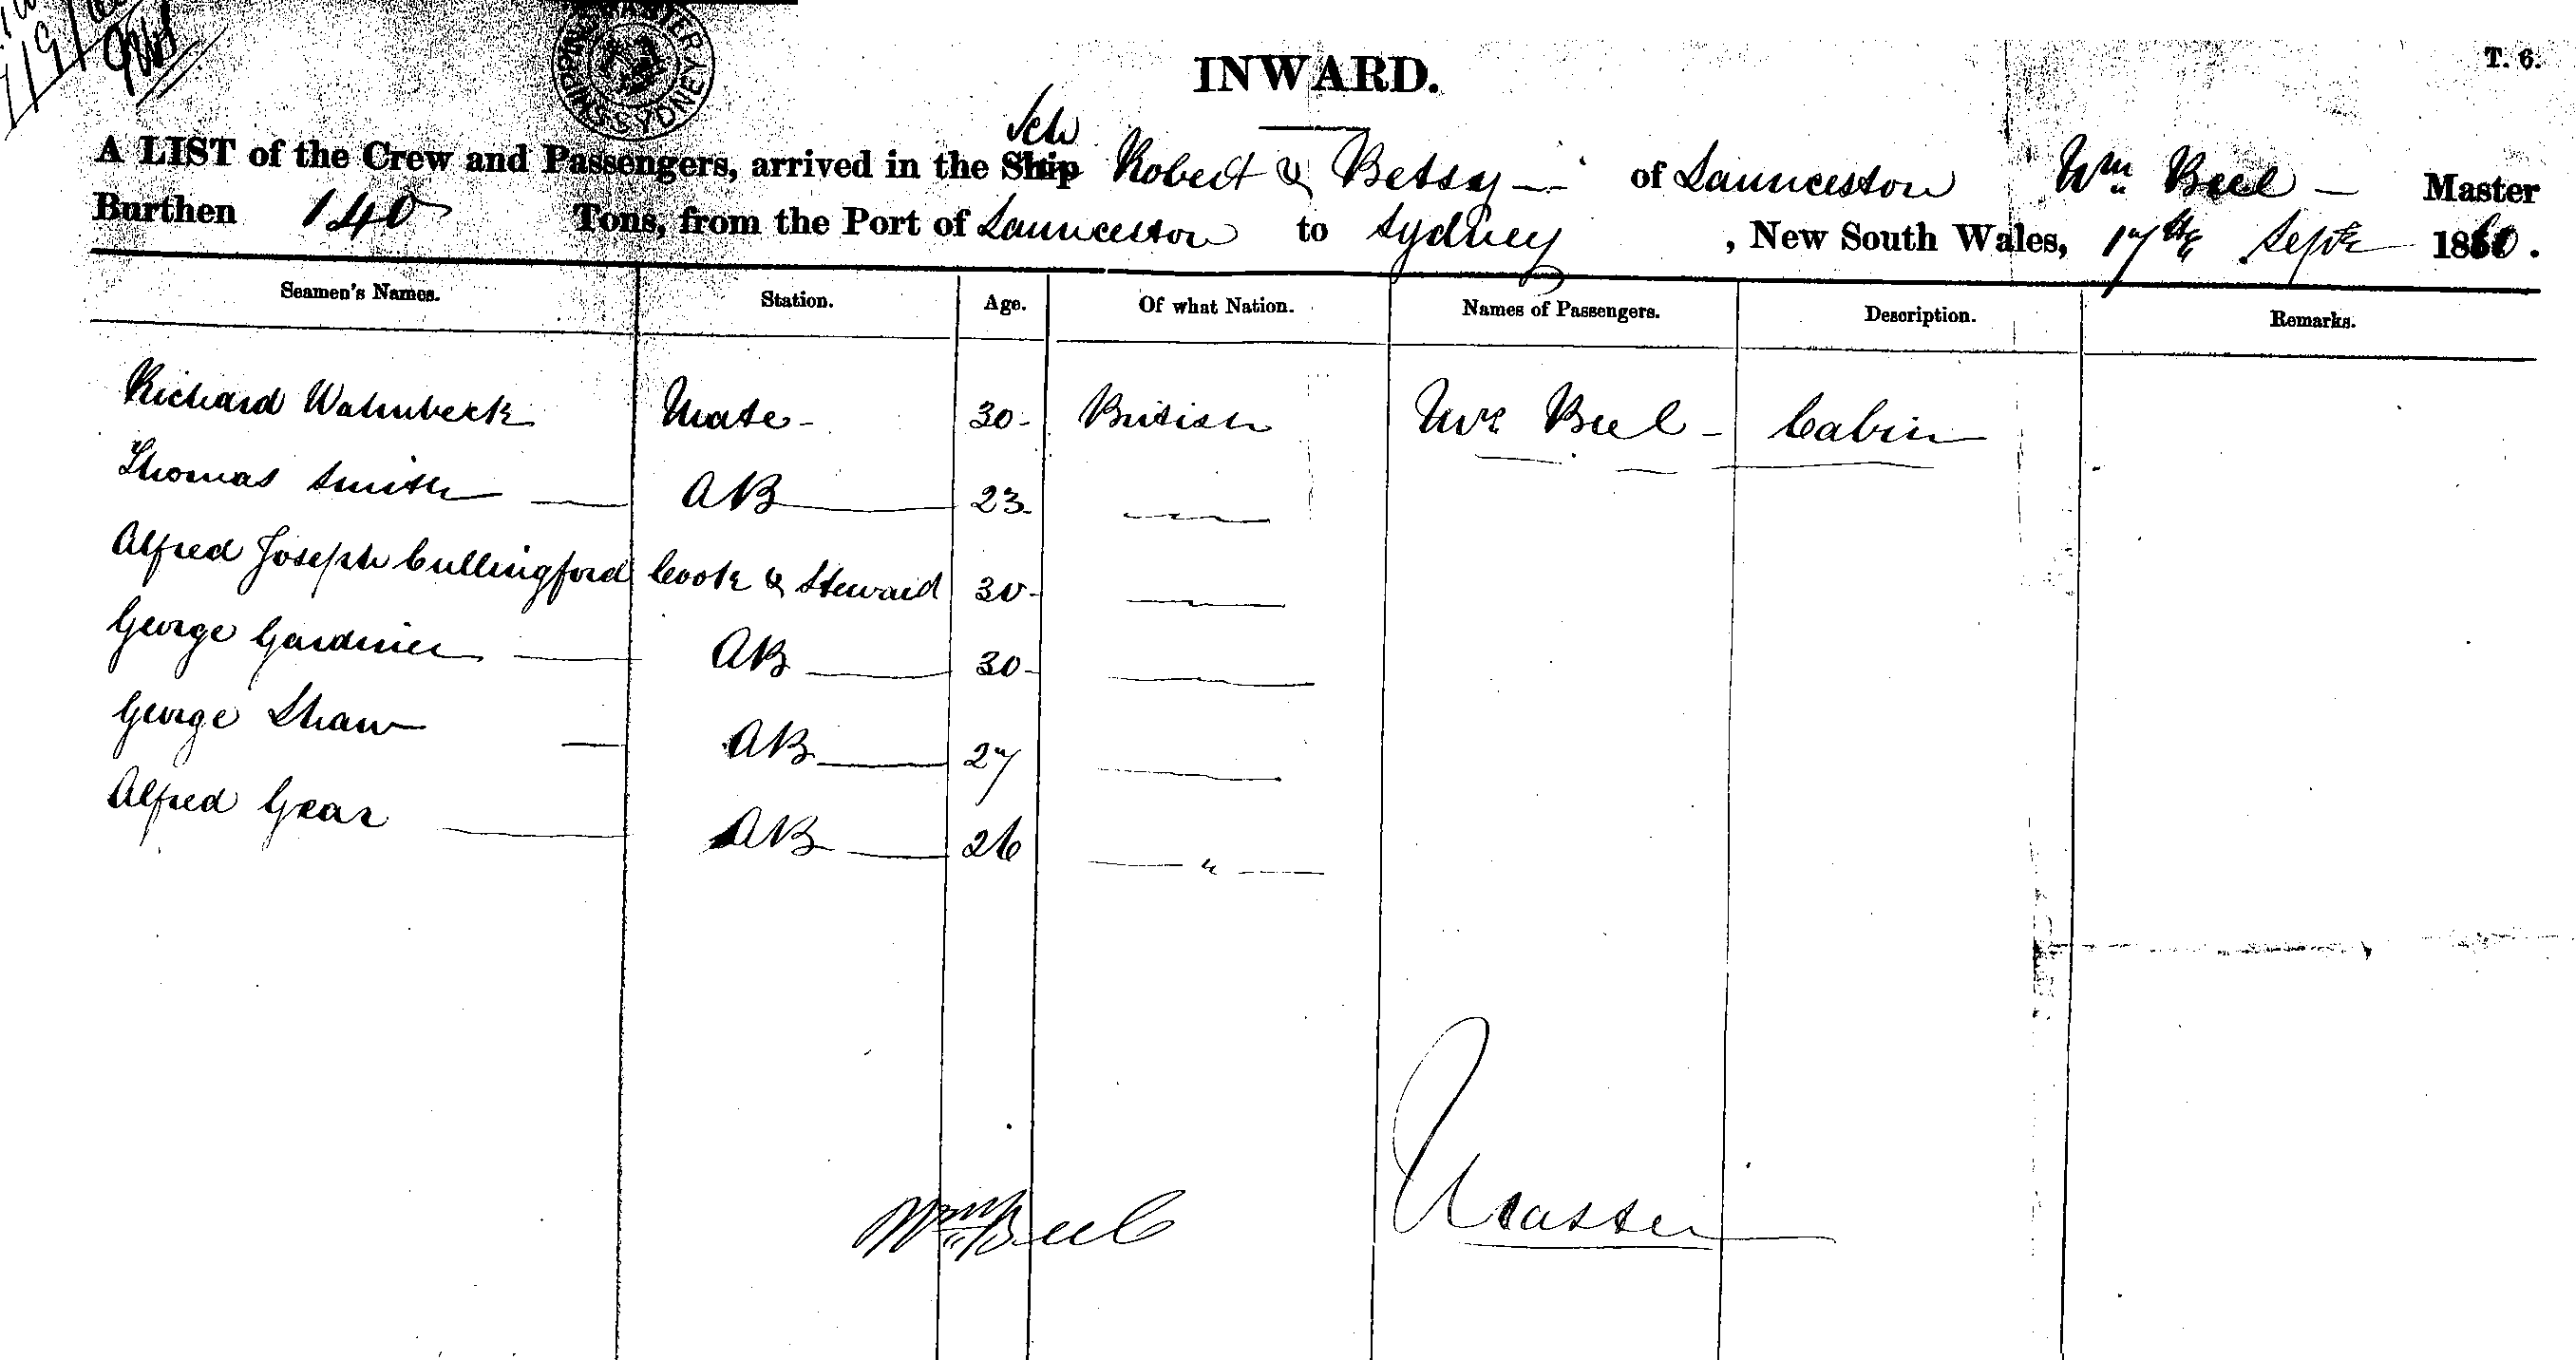 INWARD.
T. 6.
Sch
A LIST of the Crew and Passengers, arrived in the Ship Robert & Betsy of Launceston Wm Beel Master
Burthen 140 Tons, from the Port of Launceston to Sydney, New South Wales, 17th Septr 1860.
Seamen's Names. Station. Age. Of what Nation. Names of Passengers. Description. Remarks.
Richard Wahnbeck Mate 30 British Mrs Beel Cabin
Thomas Smith AB 23
Alfred Joseph Cullingford Cook & Steward 30
George Gardner AB 30
George Shaw AB 27
Alfred Gear AB 26 "
Wm Beel Master